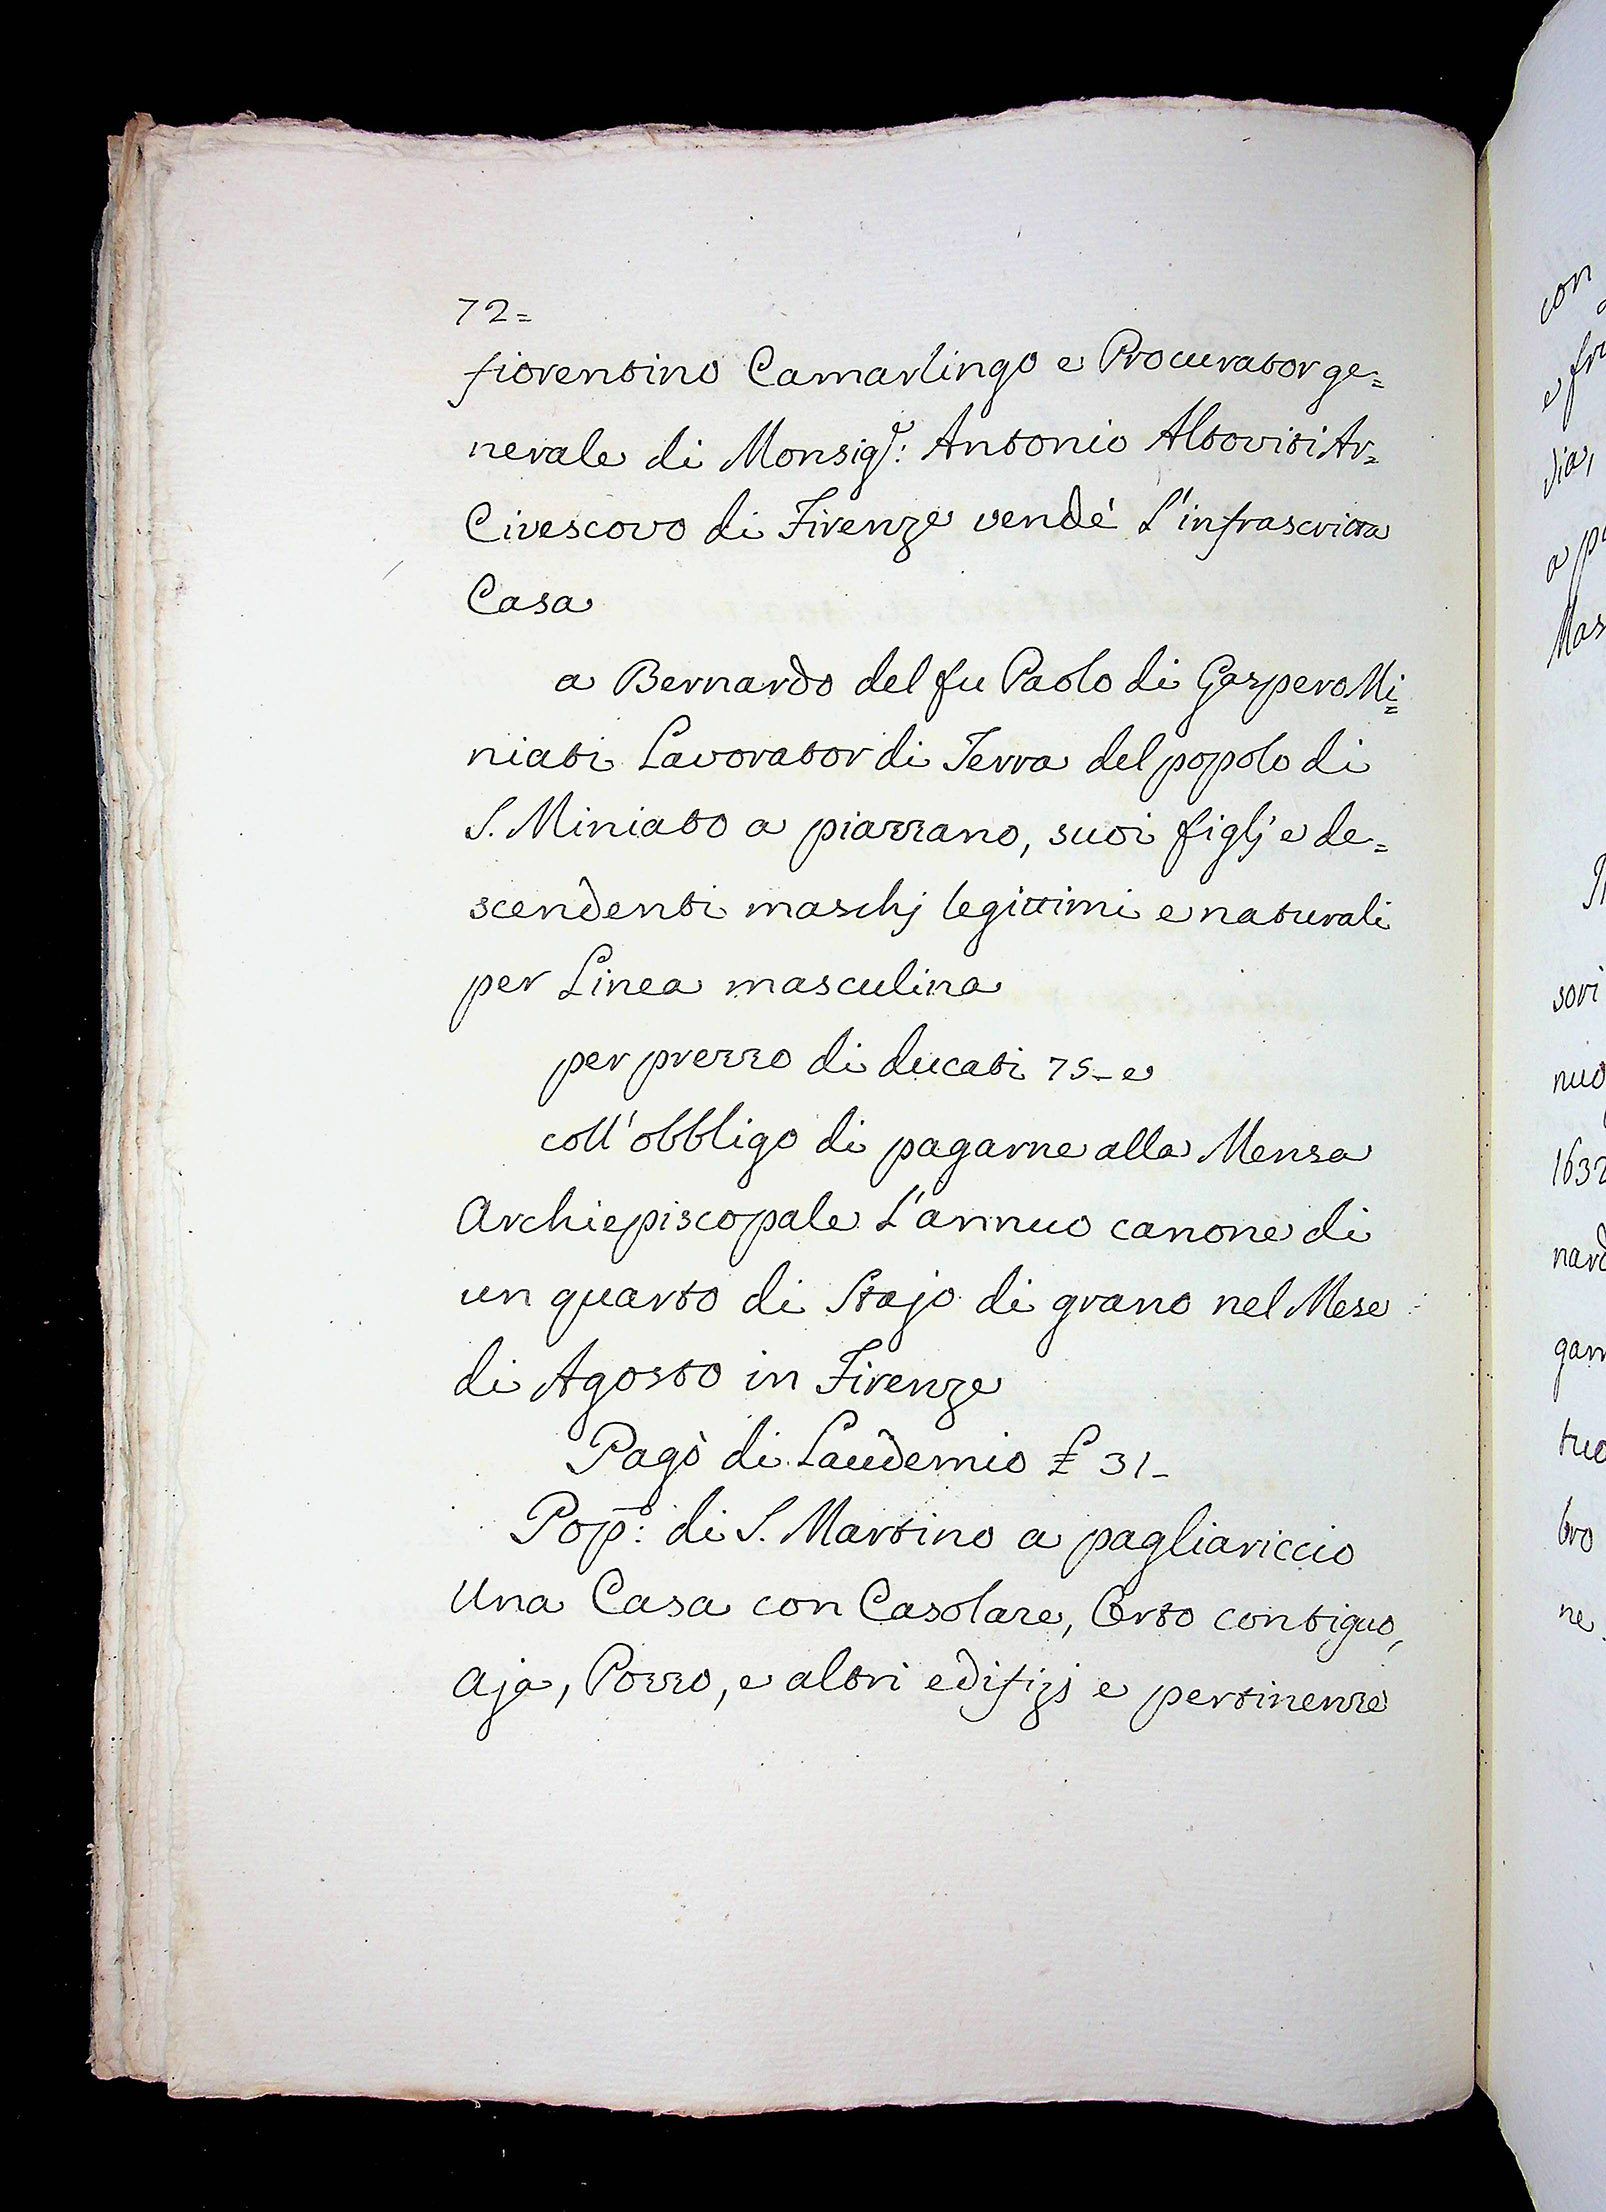 72=
fiorentino Camarlingo e Procurator ge=
nerale di Monsig.r: Antonio Altoviti Ar=
Civescovo di Firenze vendé l'infrascritta
Casa
a Bernardo del fu Paolo di Gaspero Mi=
niati Lavorator di Terra del popolo di
S. Miniato a piazzano, suoi figlj e de=
scendenti maschj legittimi e naturali
per Linea masculina
per prezzo di ducati 75_ e
coll'obbligo di pagarne alla Mensa
Archiepiscopale L'annuo canone di
un quarto di Stajo di grano nel Mese
di Agosto in Firenze
Pagò di Laudemio £ 31_
Pop.o: di S. Martino a pagliariccio
Una Casa con Casolare, Orto contiguo,
Aja, Pozzo, e altri edifizj e pertinenze
con
e fr
dia,
a p
Mas
sori
nuo
1632
nard
gam
tuo
bro
ne